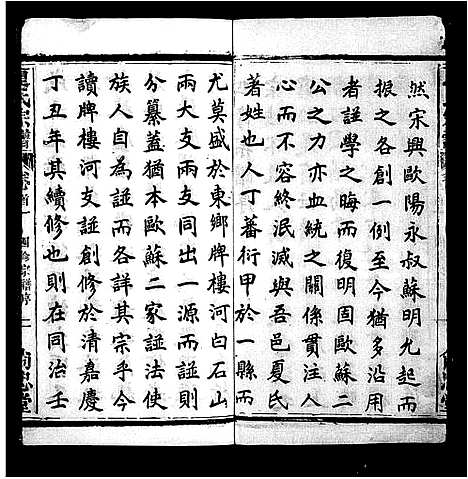 然宋興歐陽永叔蘇明允起而
振之各創一例至今猶多沿用
者譜學之晦而復明固歐蘇二
公之力亦血統之關係貫注人
心而不容終泯滅與吾邑夏氏
著姓也人丁蕃衍甲於一縣而
尤莫盛於東鄉牌樓河白石山
兩大支兩支同出一源而譜則
分纂蓋猶本歐蘇二家譜法使
族人自為譜而各詳其宗乎今
讀牌樓河支譜創修於清嘉慶
丁丑年其續修也則在同治壬
夏氏宗譜
卷首一